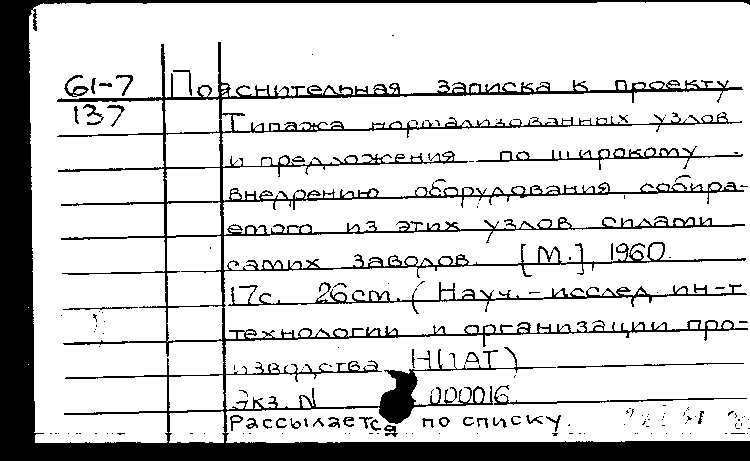 61-7 Пояснительная записка к проекту
137 Типажа нормализованных узлов
и предложения по широкому
внедрению оборудования, собира-
емого из этих узлов силами
самих заводов. [М.], 1960.
17с. 26cm. (Науч.-исслед. ин-т
технологии и организации про-
изводства НИАТ)
Экз. N 000016
Рассылается по списку.